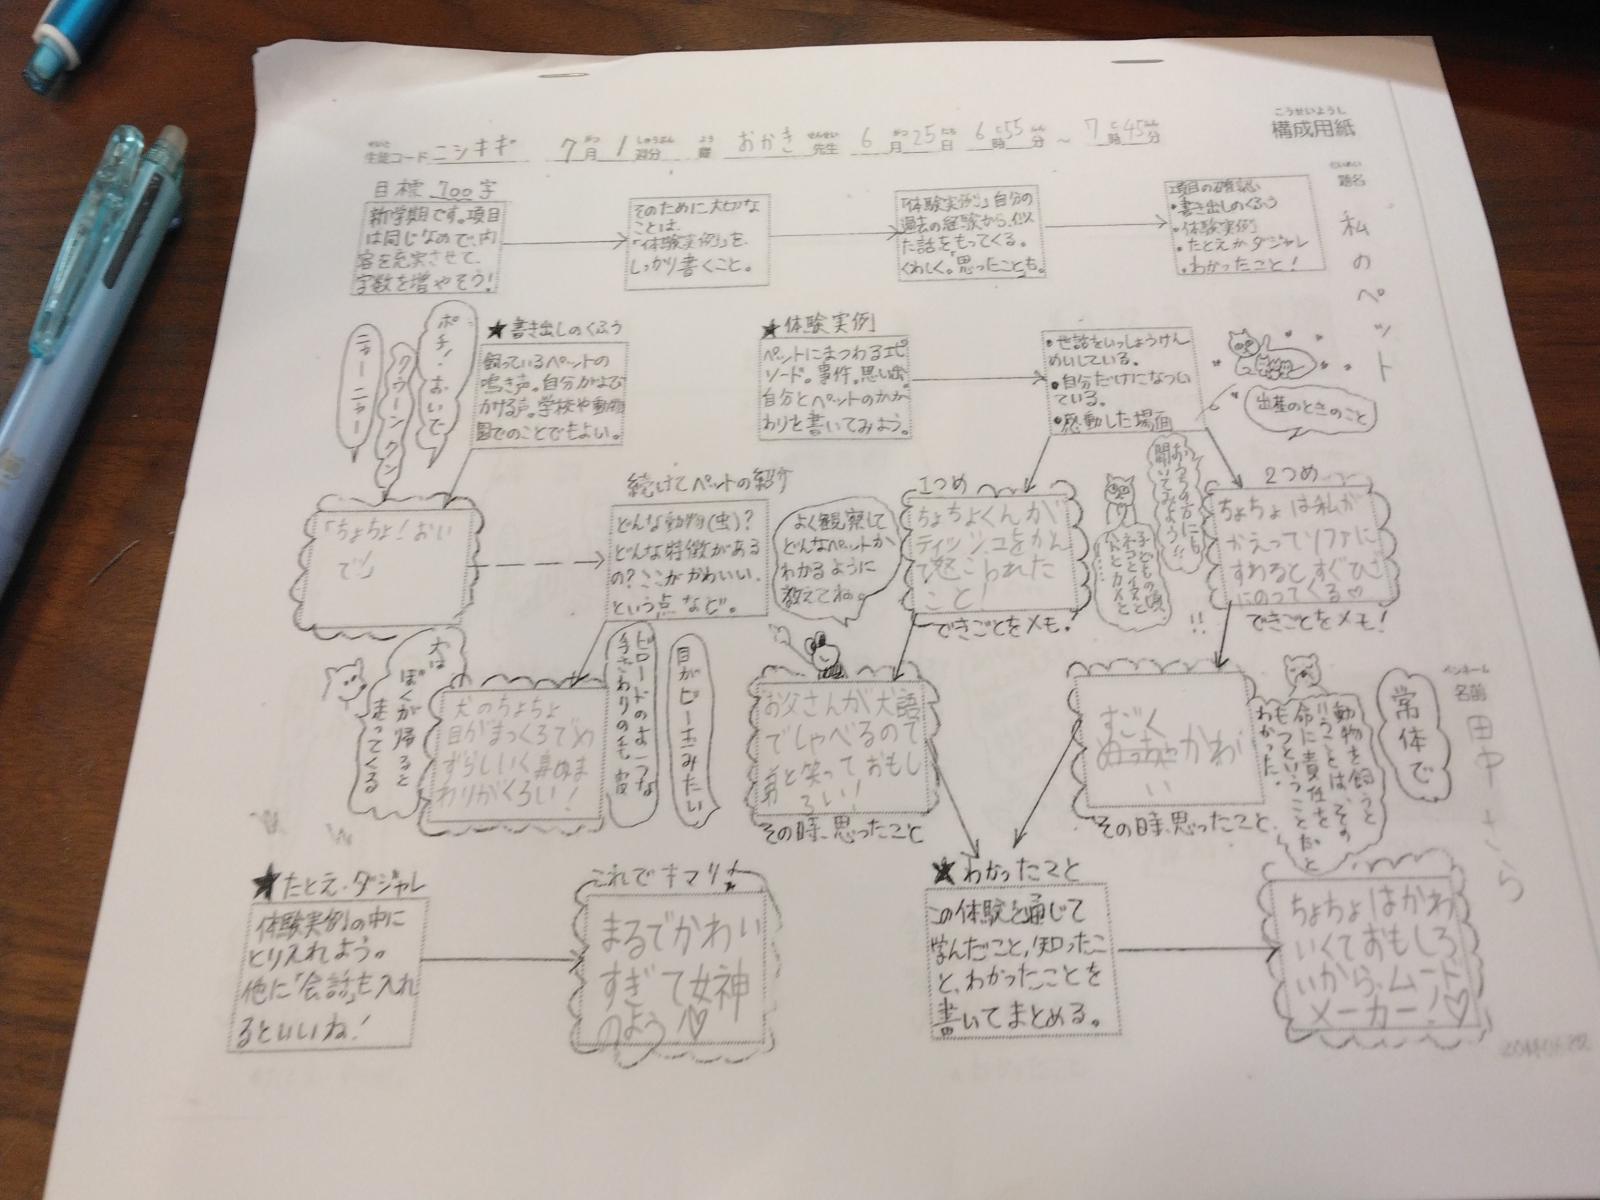 こうせいようし
構成用紙
生徒コード ニシキギ 7月 1週分 曜 おかき 先生 6月25日 6時55分 ～ 7時45分
題名
私のペット
目標 700字
新学期です。項目
は同じなので、内
容を充実させて、
字数を増やそう!
そのために大切な
ことは、
「体験実例」を、
しっかり書くこと。
「体験実例」自分の
過去の経験から、似
た話をもってくる。
くわしく。「思ったこと」も。
項目の確認
・書き出しのくふう
・体験実例
・たとえかダジャレ
・わかったこと!
ポチ!おいで
クゥーンクン
ニャーニャー
★書き出しのくふう
飼っているペットの
鳴き声。自分がよび
かける声。学校や動物
園でのことでもよい。
★体験実例
ペットにまつわるエピ
ソード。事件。思い出。
自分とペットのかか
わりを書いてみよう。
・世話をいっしょうけん
めいしている。
・自分だけになつい
ている。
・感動した場面
出産のときのこと
「ちょちょ!おい
で」
続けてペットの紹介
どんな動物(虫)?
どんな特徴がある
の?ここがかわいい、
という点など。
よく観察して
どんなペットか
わかるように
教えてね。
1つめ
ちょちょくんが
ティッシュをかん
で怒こられた
こと!
できごとをメモ!
おうちの方にも
聞いてみよう!!
子どもの頃、
ネコとイヌと
2つめ
ちょちょは私が
かえってソファに
すわると、すぐひざ
にのってくる♡
できごとをメモ!
!!
犬は
ぼくが帰ると
走ってくる
犬のちょちょ
目がまっくろでめ
ずらしいく鼻のま
わりがくろい!
ビロードのような
手ざわりの毛皮
目がビー玉みたい
お父さんが犬語
でしゃべるので
弟と笑っておもし
ろい!
その時、思ったこと
すごく
めっちゃかわい
い
その時、思ったこと、
動物を飼うと
いうことは、その
命に責任を
もつということだと
わかった。
常体で
ペンネーム
名前
田中さら
★たとえ・ダジャレ
体験実例の中に
とり入れよう。
他に「会話」も入れ
るといいね!
これでキマリ★
まるでかわい
すぎて女神
のよう!♡
★わかったこと
この体験を通じて
学んだこと、知ったこ
と、わかったことを
書いてまとめる。
ちょちょはかわ
いくておもしろ
いから、ムード
メーカー!♡